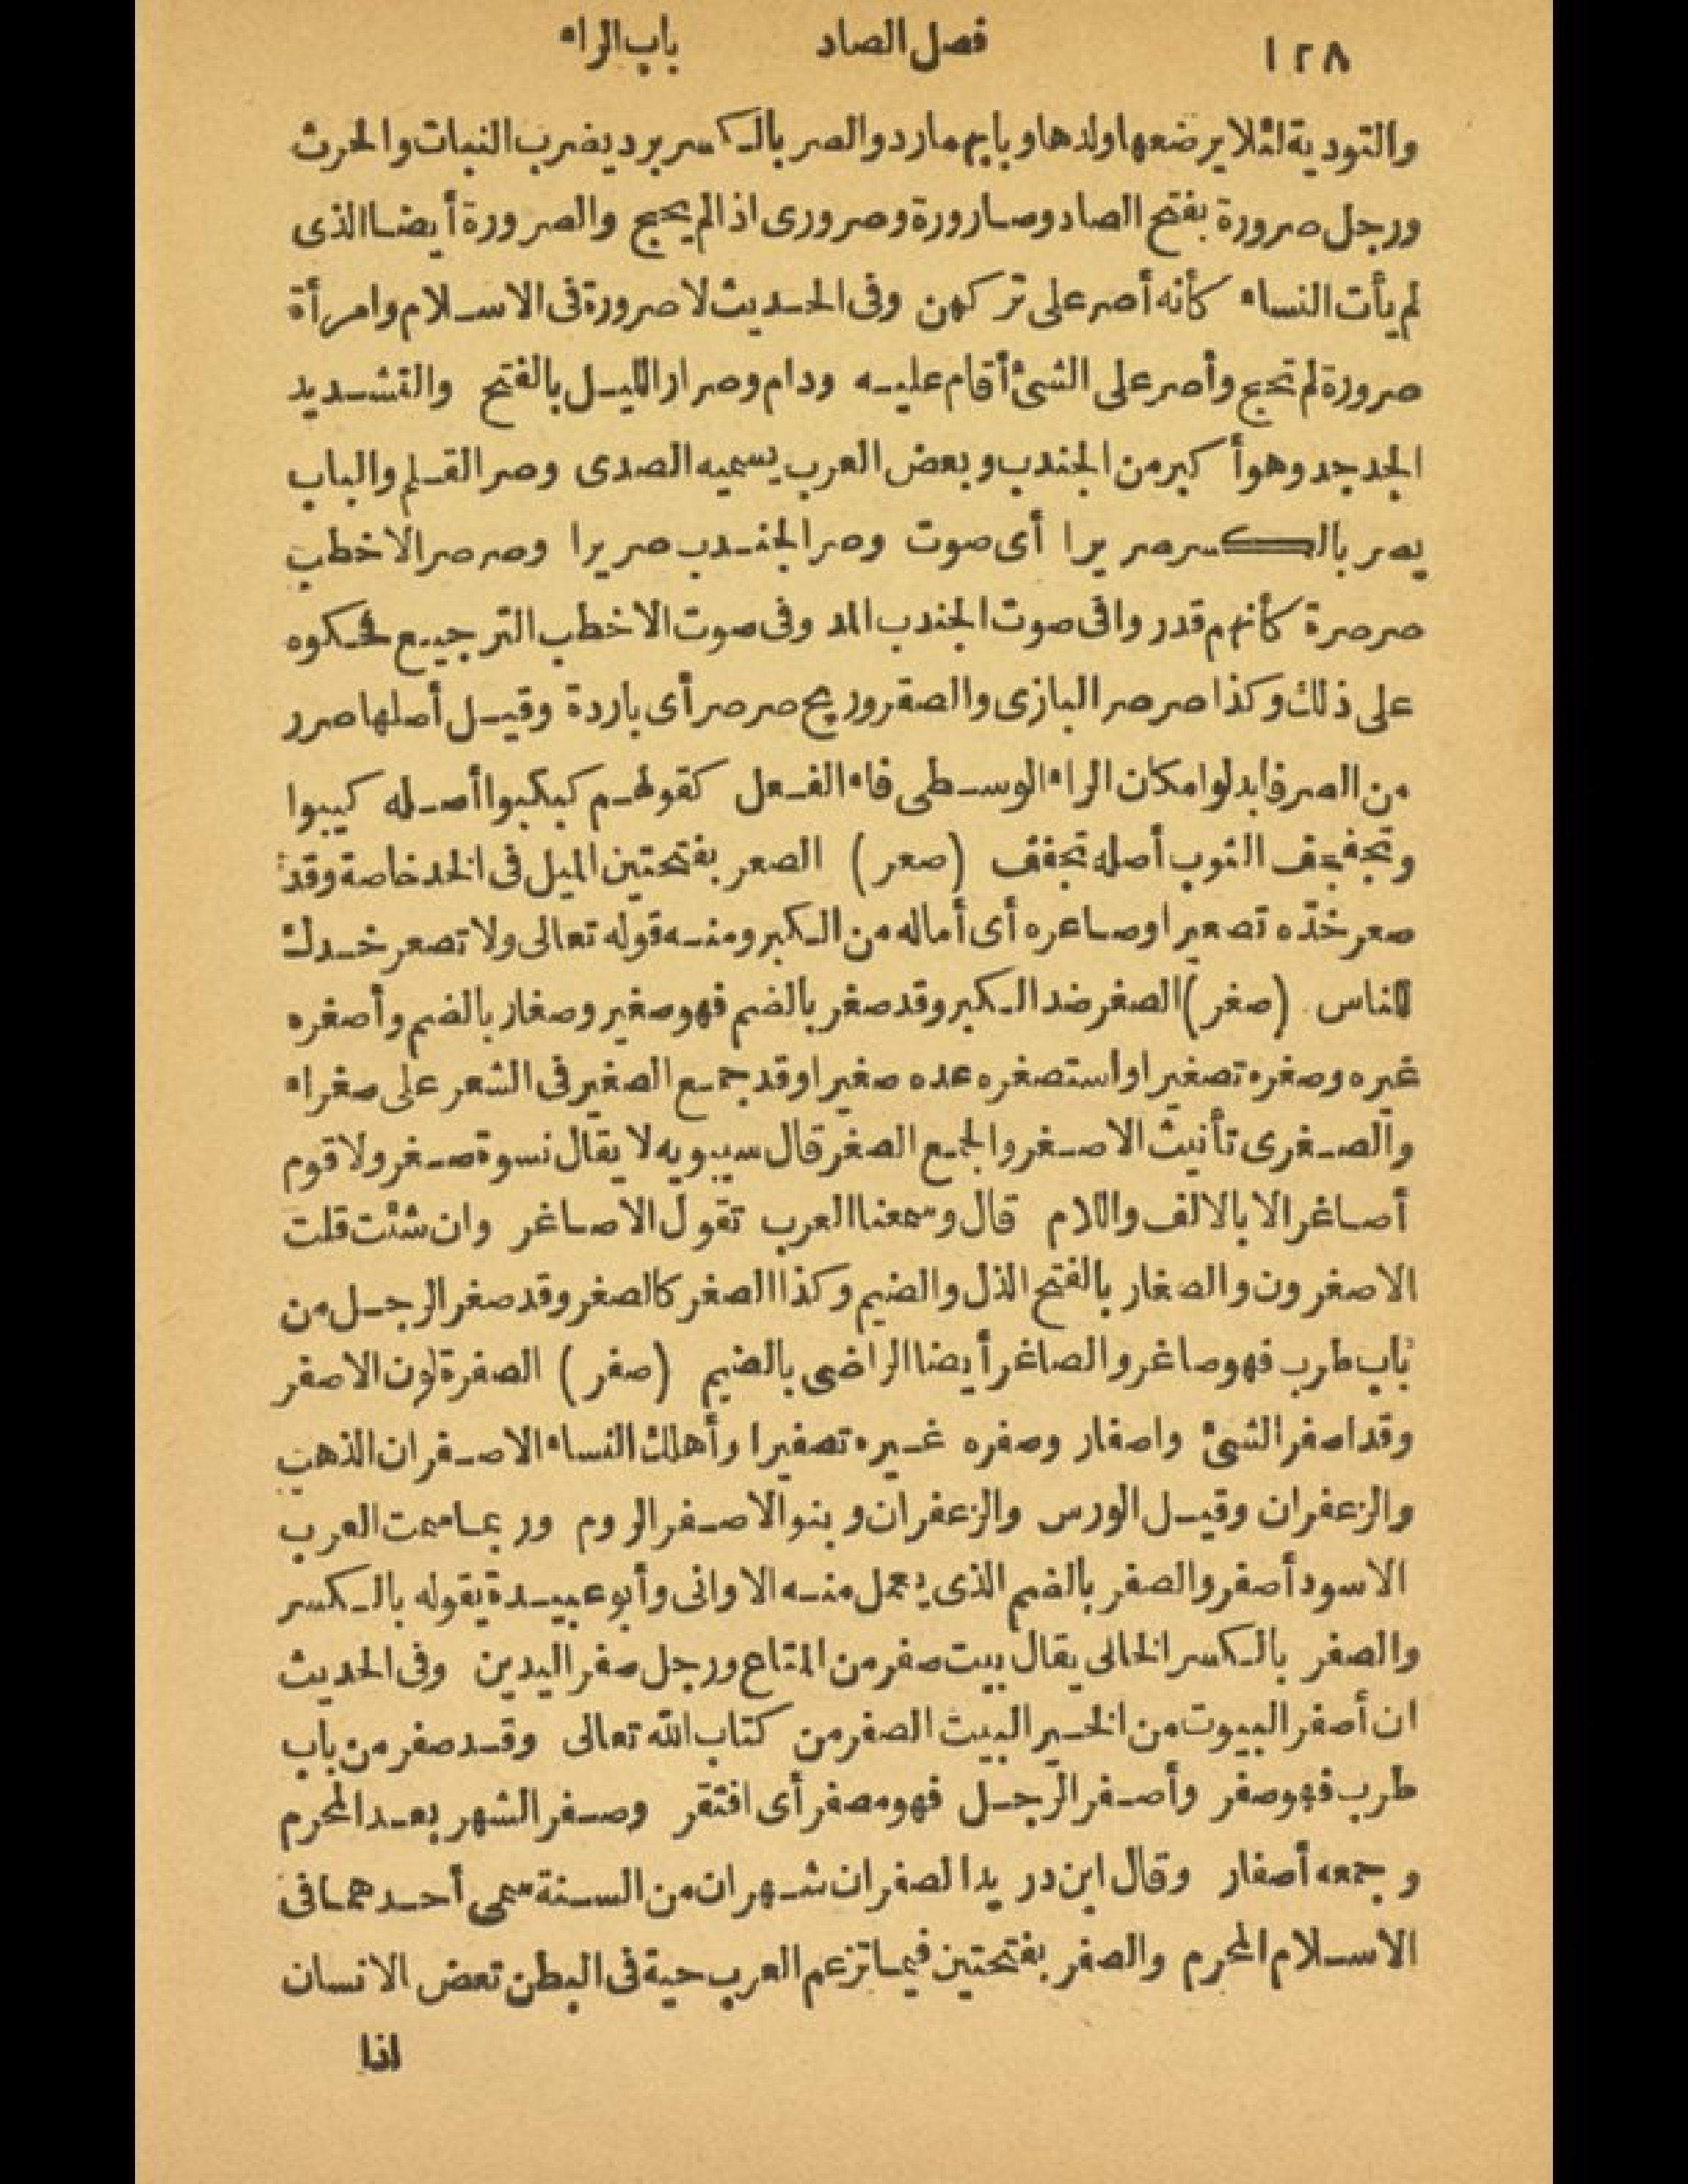 ١٢٨ فصل الصاد باب الراء
والتودية لئلا يرضعها ولدها وبابهما رد والصر بالكسر برد يضرب النبات والحرث
ورجل صرورة بفتح الصاد وصارورة وصرورى اذا لم يحج والصرورة أيضا الذى
لم يأت النساء كأنه أصر على تركهن وفى الحديث لا صرورة فى الاسلام وامرأة
صرورة لم تحج وأصر على الشئ أقام عليه ودام وصرار الليل بالفتح والتشديد
الجدجد وهو أكبر من الجندب وبعض العرب يسميه الصدى وصر القلم والباب
يصر بالكسر صريرا أى صوت وصر الجندب صريرا وصرصر الاخطب
صرصرة كأنهم قدروا فى صوت الجندب المد وفى صوت الاخطب الترجيع فحكوه
على ذلك وكذا صرصر البازى والصقر وريح صرصر أى باردة وقيل أصلها صرر
من الصر فابدلوا مكان الراء الوسطى فاء الفعل كقولهم كبكبوا أصله كببوا
وتجفجف الثوب أصله تجفف (صعر) الصعر بفتحتين الميل فى الخد خاصة وقد
صعر خدّه تصعيرا وصاعره أى أماله من الكبر ومنه قوله تعالى ولا تصعر خدك
للناس (صغر) الصغر ضد الكبر وقد صغر بالضم فهو صغير وصغار بالضم وأصغره
غيره وصغره تصغيرا واستصغره عده صغيرا وقد جمع الصغير فى الشعر على صغراء
والصغرى تأنيث الاصغر والجمع الصغر قال سيبويه لا يقال نسوة صغر ولا قوم
أصاغر الا بالالف واللام قال وسمعنا العرب تقول الاصاغر وان شئت قلت
الاصغرون والصغار بالفتح الذل والضيم وكذا الصغر كالصغر وقد صغر الرجل من
باب طرب فهو صاغر والصاغر أيضا الراضى بالضيم (صفر) الصفرة لون الاصفر
وقد اصفر الشئ واصفار وصفره غيره تصفيرا وأهلك النساء الاصفران الذهب
والزعفران وقيل الورس والزعفران وبنو الاصفر الروم وربما سمت العرب
الاسود أصفر والصفر بالضم الذى يعمل منه الاوانى وأبو عبيدة يقوله بالكسر
والصفر بالكسر الخالى يقال بيت صفر من المتاع ورجل صفر اليدين وفى الحديث
ان أصفر البيوت من الخير البيت الصفر من كتاب الله تعالى وقد صفر من باب
طرب فهو صفر وأصفر الرجل فهو مصفر أى افتقر وصفر الشهر بعد المحرم
وجمعه أصفار وقال ابن دريد الصفران شهران من السنة سمى أحدهما فى
الاسلام المحرم والصفر بفتحتين فيما تزعم العرب حية فى البطن تعض الانسان
اذا